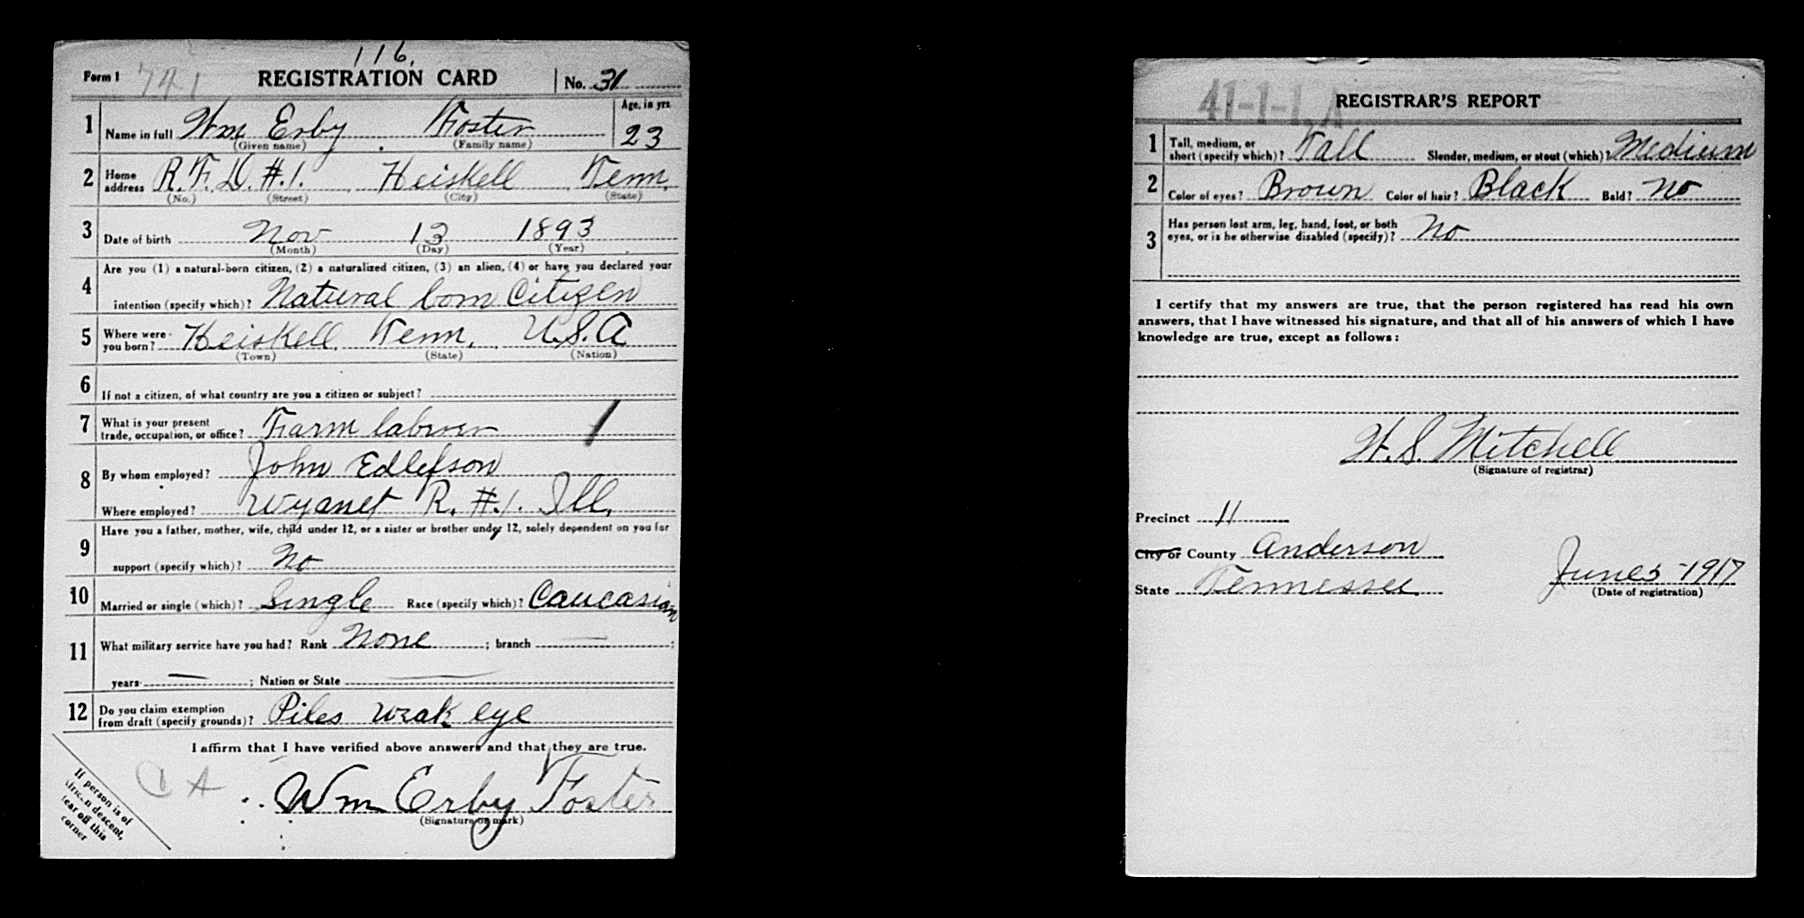 116.
Form 1 741 REGISTRATION CARD No. 31
1 Name in full Wm Erby Foster Age, in yrs. 23
(Given name) (Family name)
2 Home address R.F.D. #.1. Heiskell Tenn.
(No.) (Street) (City) (State)
3 Date of birth Nov 13 1893
(Month) (Day) (Year)
4 Are you (1) a natural-born citizen, (2) a naturalized citizen, (3) an alien, (4) or have you declared your
intention (specify which)? Natural born Citizen
5 Where were you born? Heiskell Tenn. U.S.A
(Town) (State) (Nation)
6 If not a citizen, of what country are you a citizen or subject?
7 What is your present trade, occupation, or office? Farm laborer 1
8 By whom employed? John Edlefson
Where employed? Wyanet R. #.1. Ill.
9 Have you a father, mother, wife, child under 12, or a sister or brother under 12, solely dependent on you for
support (specify which)? No
10 Married or single (which)? Single Race (specify which)? Caucasian
11 What military service have you had? Rank None ; branch — ;
years — ; Nation or State —
12 Do you claim exemption from draft (specify grounds)? Piles weak eye
I affirm that I have verified above answers and that they are true.
C A Wm Erby Foster
(Signature or mark)
If person is of
African descent,
tear off this
corner
41-1-1. A REGISTRAR'S REPORT
1 Tall, medium, or short (specify which)? Tall Slender, medium, or stout (which)? Medium
2 Color of eyes? Brown Color of hair? Black Bald? No
3 Has person lost arm, leg, hand, foot, or both
eyes, or is he otherwise disabled (specify)? No
I certify that my answers are true, that the person registered has read his own
answers, that I have witnessed his signature, and that all of his answers of which I have
knowledge are true, except as follows:
H. S. Mitchell
(Signature of registrar)
Precinct 11
City or County Anderson
State Tennessee June 5 - 1917
(Date of registration)